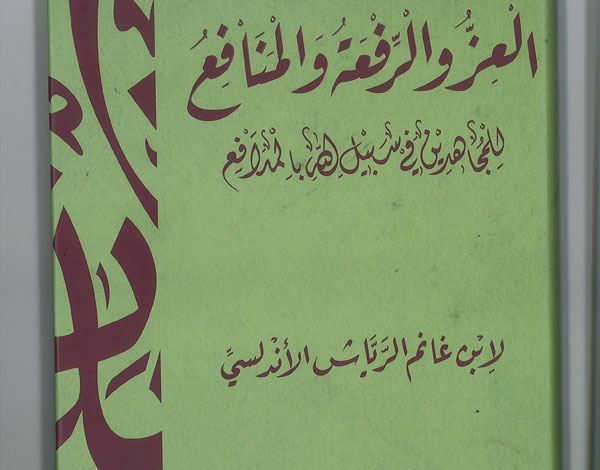 الْعِزُّ وَالرِّفْعَةُ وَالْمَنَافِعُ
لِلْمُجَاهِدِيْنَ فِيْ سَبِيْلِ اللهِ بِالْمَدَافِعِ
لِابْنِ غَانِم الرَّيَّاشِ الأَنْدَلُسِيِّ